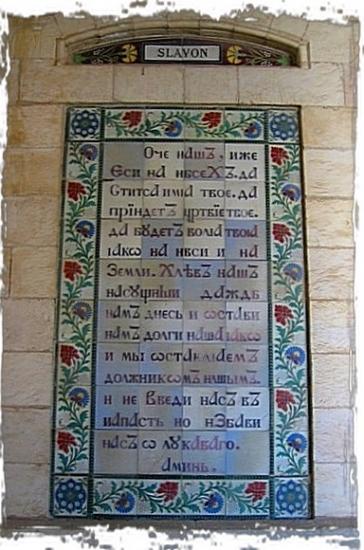 SLAVON
Оче нашъ, иже
Еси на нбсехъ. да
Ститсѧ имѧ твое. да
прїидетъ цртвїе твое.
да бꙋдетъ волѧ твоѧ
ꙗкѡ на нбси и на
Земли. Хлѣбъ нашъ
насꙋщныи даждь
намъ днесь и ѡстави
намъ долги наша ꙗкѡ
и мы ѡставлѧемъ
должникѡмъ нашымъ.
и не Введи насъ въ
напасть но избави
насъ ѿ лꙋкаваго.
аминь.